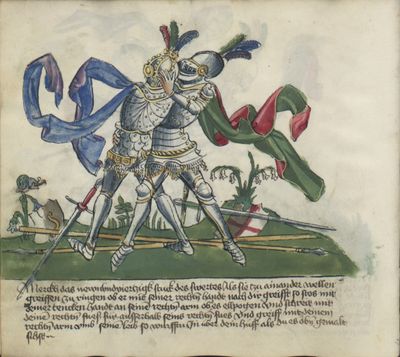 Merckt das newundvierczigist stuk des swertes Als sie zu ainander wellen
greiffen zu ringen ob er mit seiner rechtn hande nach dir greifft so stos mit
deiner tencken handt an seine rechtn arm ob es elpogen vnd schreit mit
deine rechtn fuess fur ausserhalb seins rechtn fues vnd greiff mit deinen
rechtn arm vmb seine leib so wirffstu In vber dein huff als du es obn gemalt
sichst